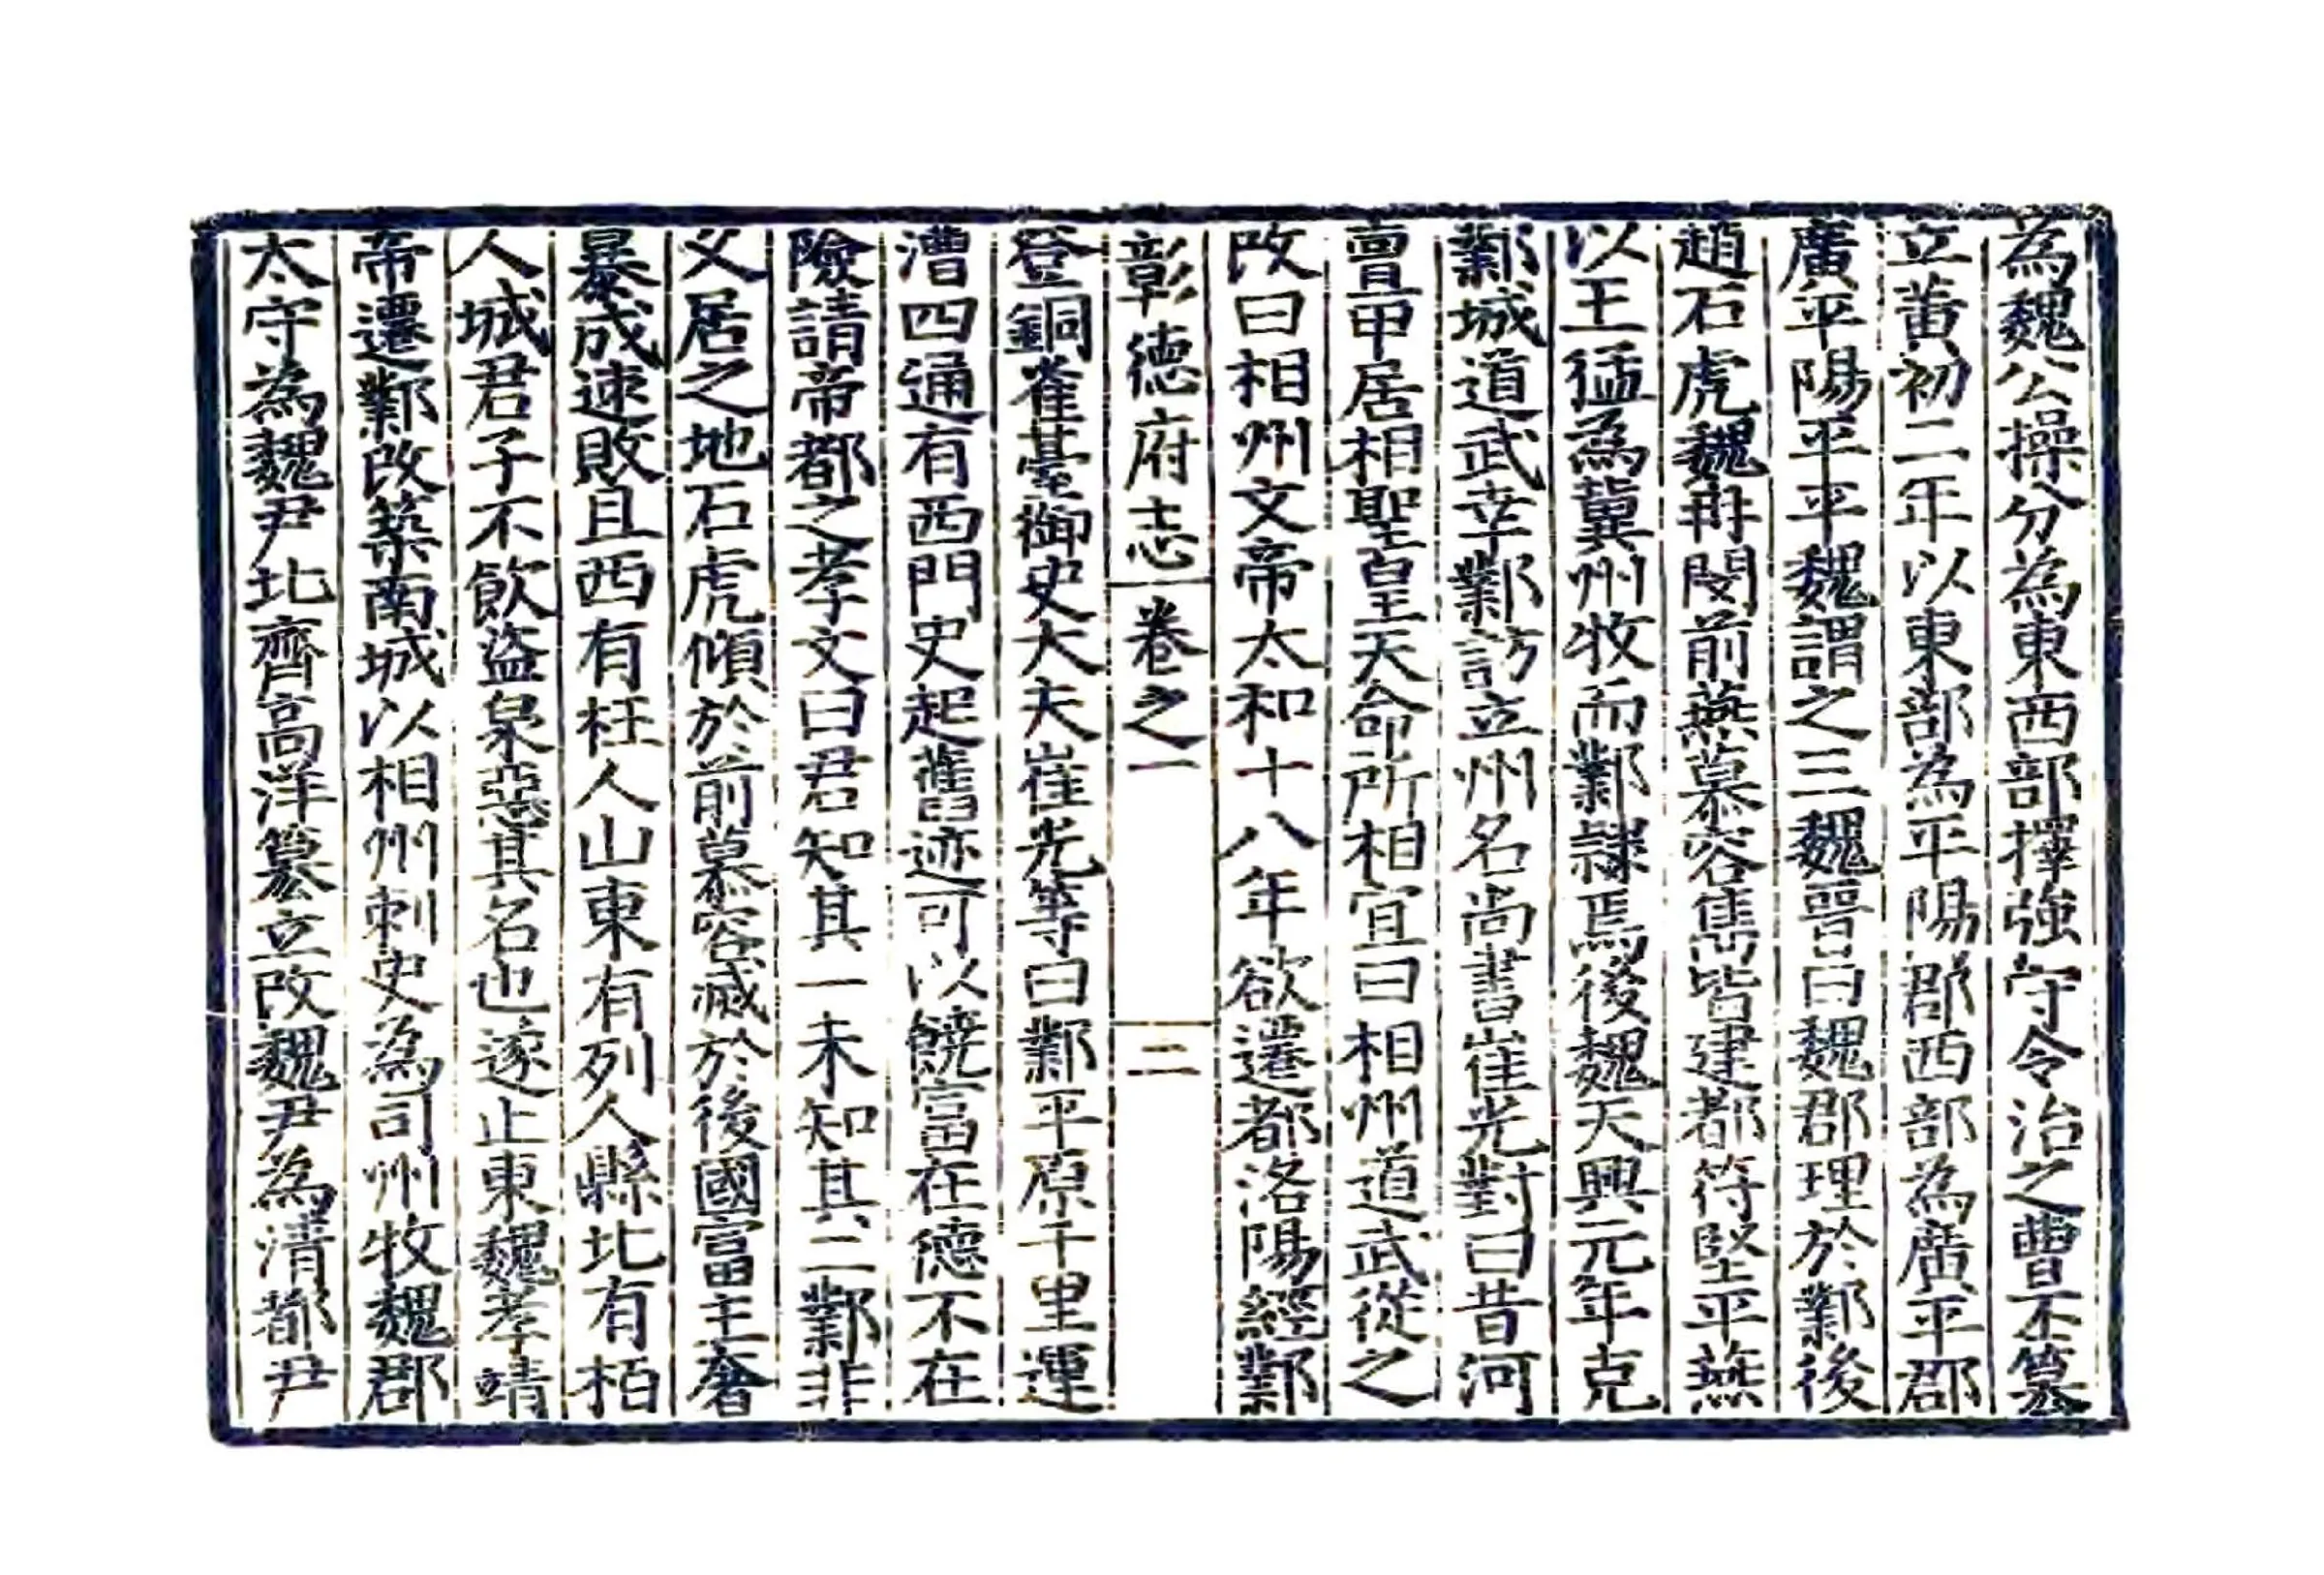 為魏公操分為東西部擇強守令治之曹丕篡
立黃初二年以東部為平陽郡西部為廣平郡
廣平陽平平魏謂之三魏晉曰魏郡理於鄴後
趙石虎魏冉閔前燕慕容雋皆建都符堅平燕
以王猛為冀州牧而鄴隷焉後魏天興元年克
鄴城道武幸鄴訪立州名尚書崔光對曰昔河
亶甲居相聖皇天命所相宜曰相州道武從之
改曰相州文帝太和十八年欲遷都洛陽經鄴
彰德府志 卷之一 二
登銅雀臺御史大夫崔光等曰鄴平原千里運
漕四通有西門史起舊迹可以饒富在德不在
險請帝都之孝文曰君知其一未知其二鄴非
乂居之地石虎傾於前慕容滅於後國富主奢
暴成速敗且西有枉人山東有列人縣北有栢
人城君子不飲盜泉惡其名也遂止東魏孝靖
帝遷鄴改築南城以相州刺史為司州牧魏郡
太守為魏尹北齊高洋篡立改魏尹為清都尹